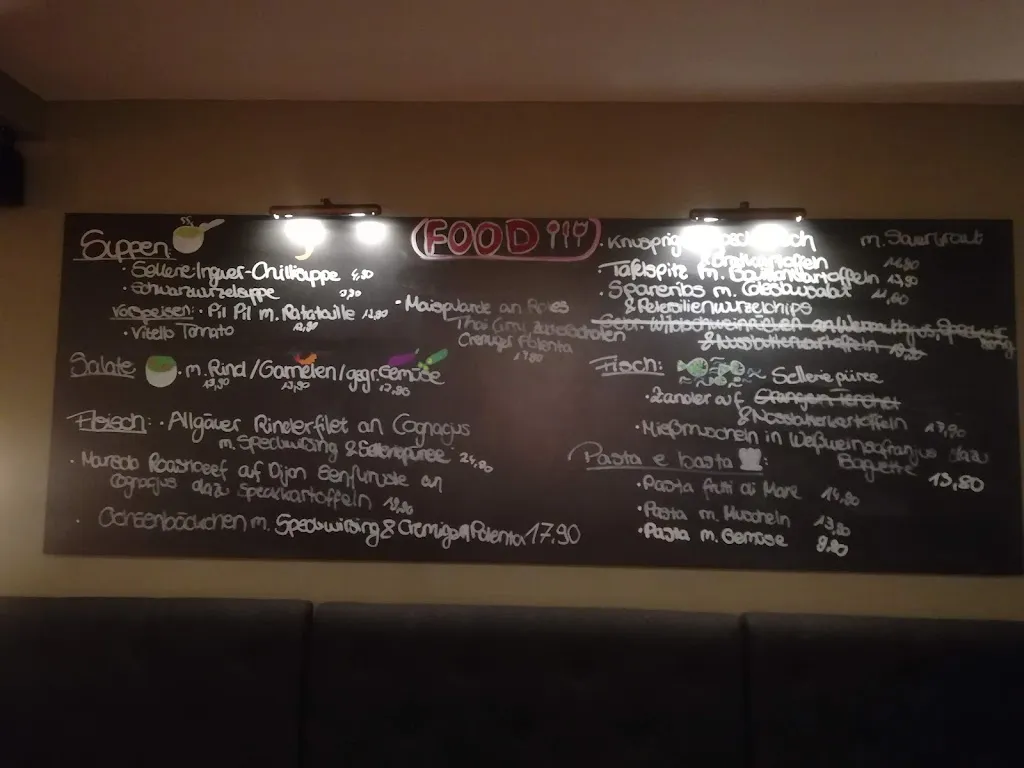 FOOD
Suppen
· Sellerie-Ingwer-Chillisuppe 4,90
· Schwarzwurzelsuppe 3,90
Vorspeisen: · Pil Pil m. Ratatuille 12,80
· Vitello Tomato 12,80
· Maispularde an Rotes
Thai Curry
Cremiger Polenta
17,80
Salate · m. Rind/Garnelen/gegr. Gemüse
13,90 13,90 12,90
Fleisch: · Allgäuer Rinderfilet an Cognacjus
m. Speckwirsing & Selleriepüree 24,90
· Maredo Roastbeef auf Dijon Senfkruste an
Cognacjus dazu Speckkartoffeln 19,90
· Ochsenbäckchen m. Speckwirsing & Cremigem Polenta 17,90
· Knusprig m. Sauerkraut
14,90
· Tafelspitz m. Bouillonkartoffeln 13,90
· Spareribs m. Coleslawsalat 14,60
& Petersilienwurzelchips
& Nussbutterkartoffeln
Fisch: Sellerie püree
· Zander auf
& Nussbutterkartoffeln 17,90
· Mießmuscheln in Weßweinsafranjus dazu
Baguette 13,80
Pasta e basta:
· Pasta frutti di Mare 14,90
· Pasta m. Muscheln 13,80
· Pasta m. Gemüse 9,90